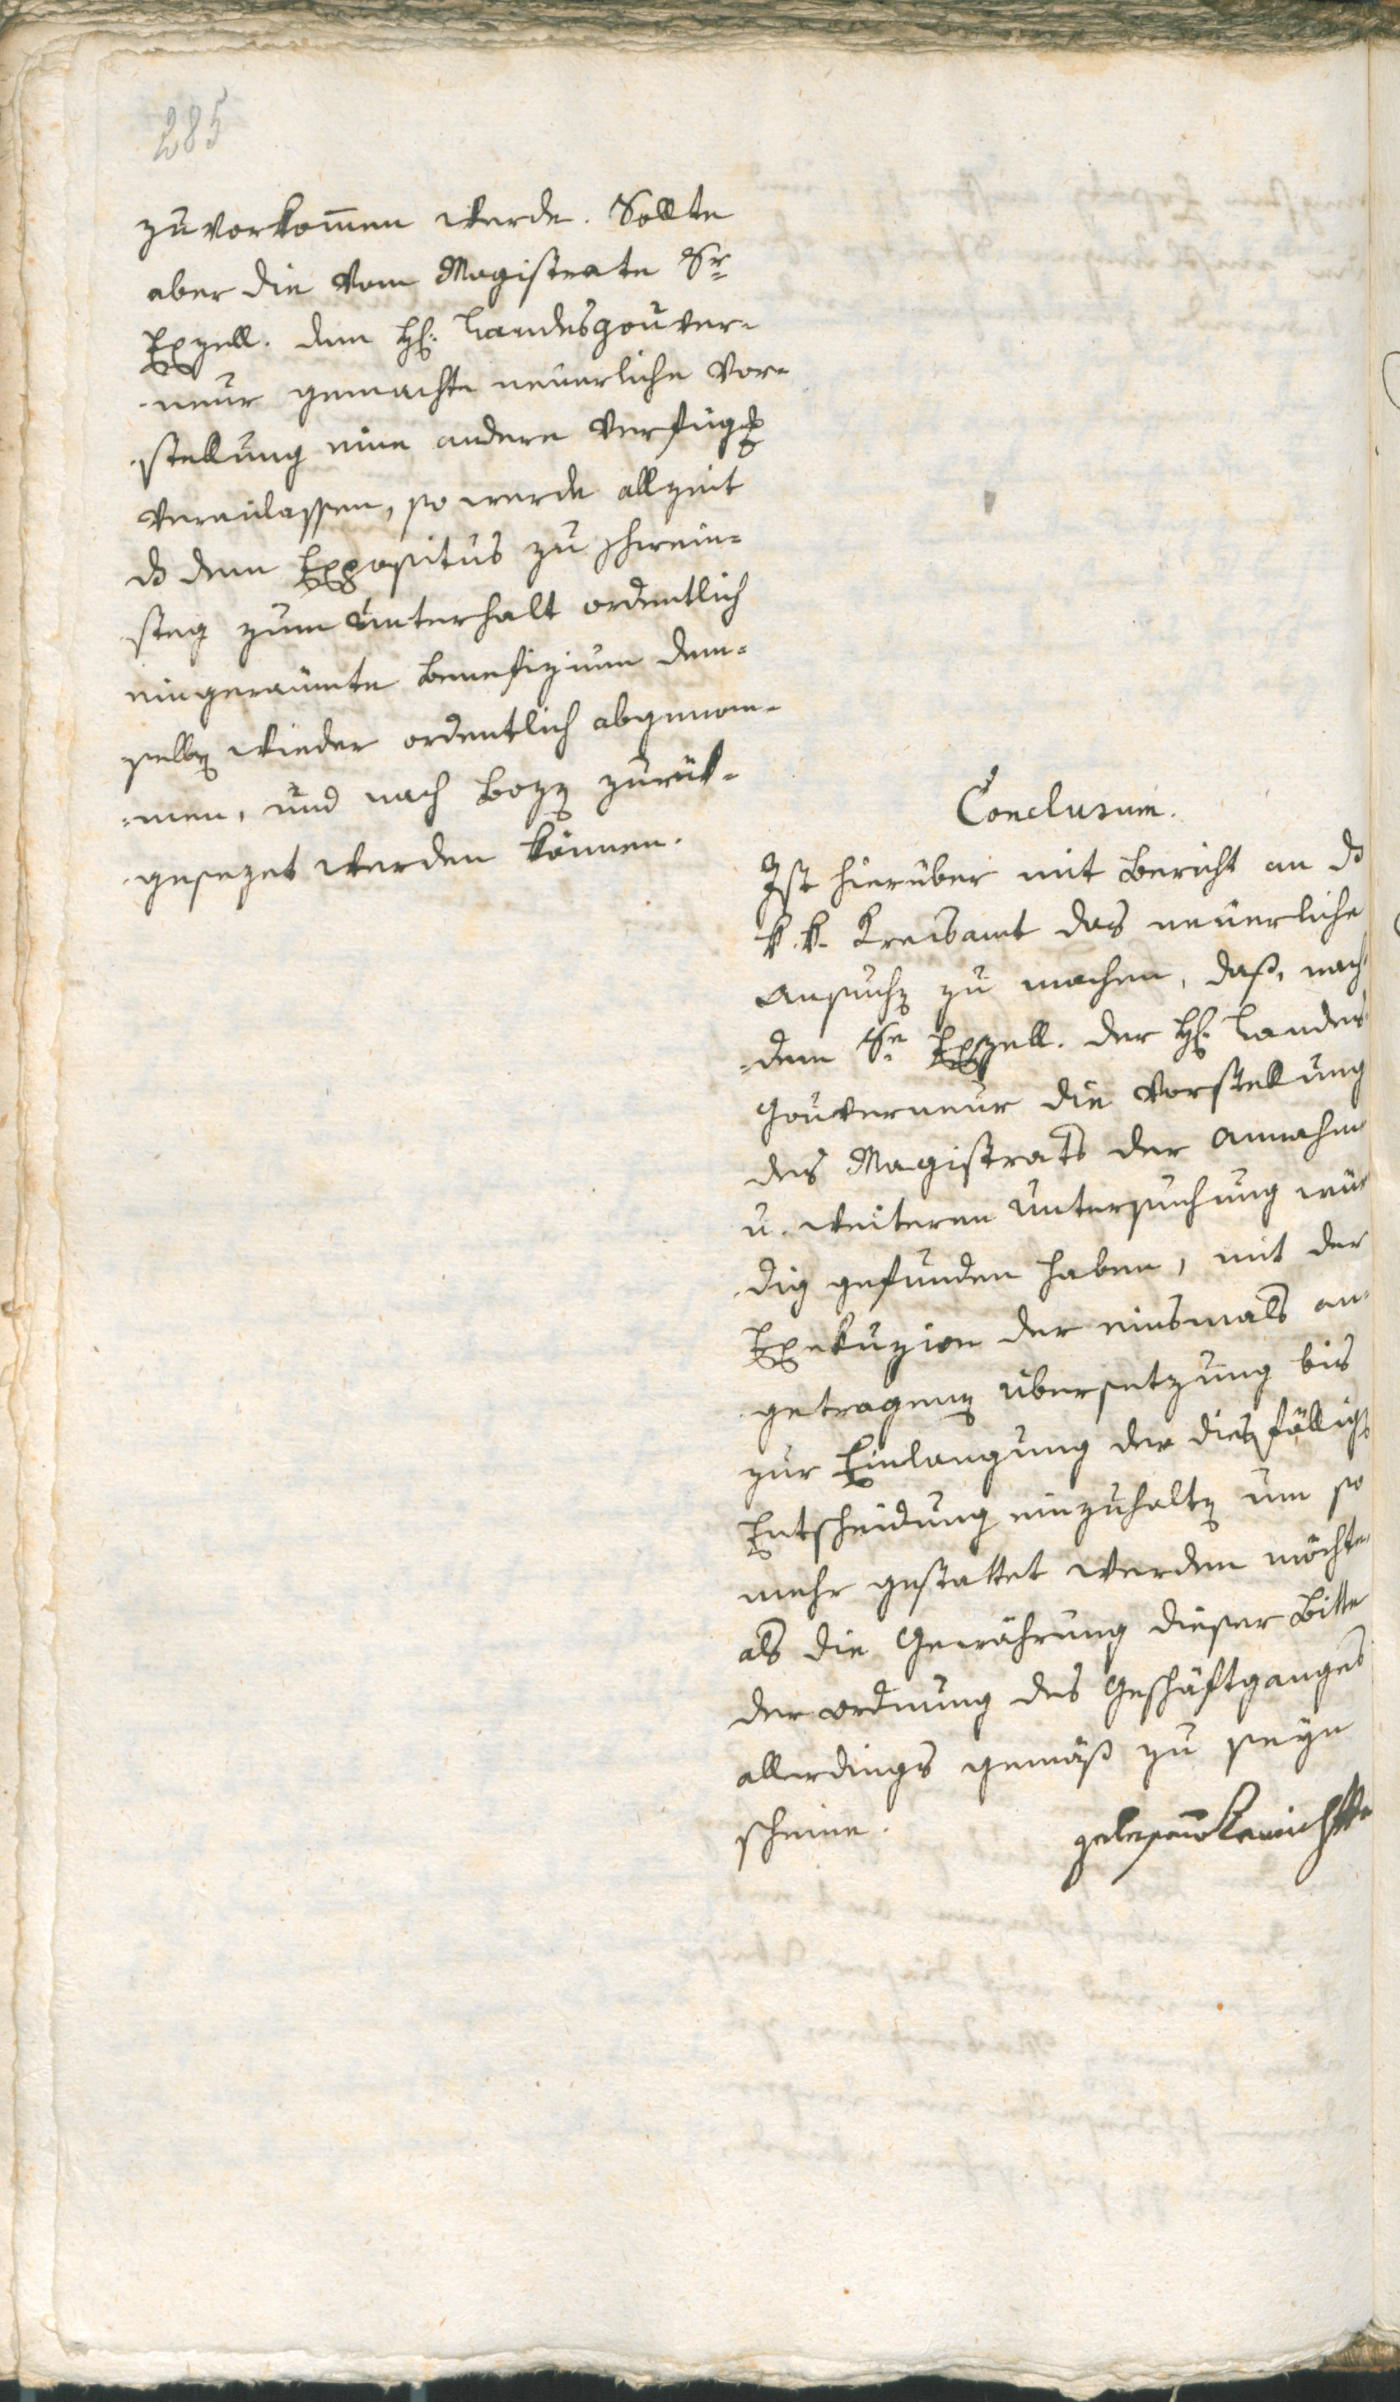 285
zuvorkom̄en werde. Sollte
aber die vom Magistrate Sr
Exzell. dem H: Landesgouver-
neur gemachte neuerliche Vor-
stellung eine andere Verfüg.
veranlassen, so werde allzeit
ds dem Expositus zu
steg zum Unterhalt ordentlich
eingeraumte Benefizium dem-
selben wieder ordentlich abgenom-
men, und nach Bozen zurük-
gesezet werden können.
Conclusum.
Ist hierüber mit Bericht an ds
k. k. Kreisamt das neuerliche
Ansuchen zu machen, daß, nach-
dem Se Exzell. der H: Landes
Gouverneur die Vorstellung
des Magistrats der Annahme
u. weiteren Untersuchung wür
dig gefunden haben, mit der
Exekuzion der einsmals an-
getragenen Übersetzung bis
zur Einlangung der diesfälligen
Entscheidung einzuhalten um so
mehr gestattet werden möchte,
als die Gewährung dieser Bitte
der Ordnung des Geschäftganges
allerdings gemäß zu seyn
scheine.
gelesen